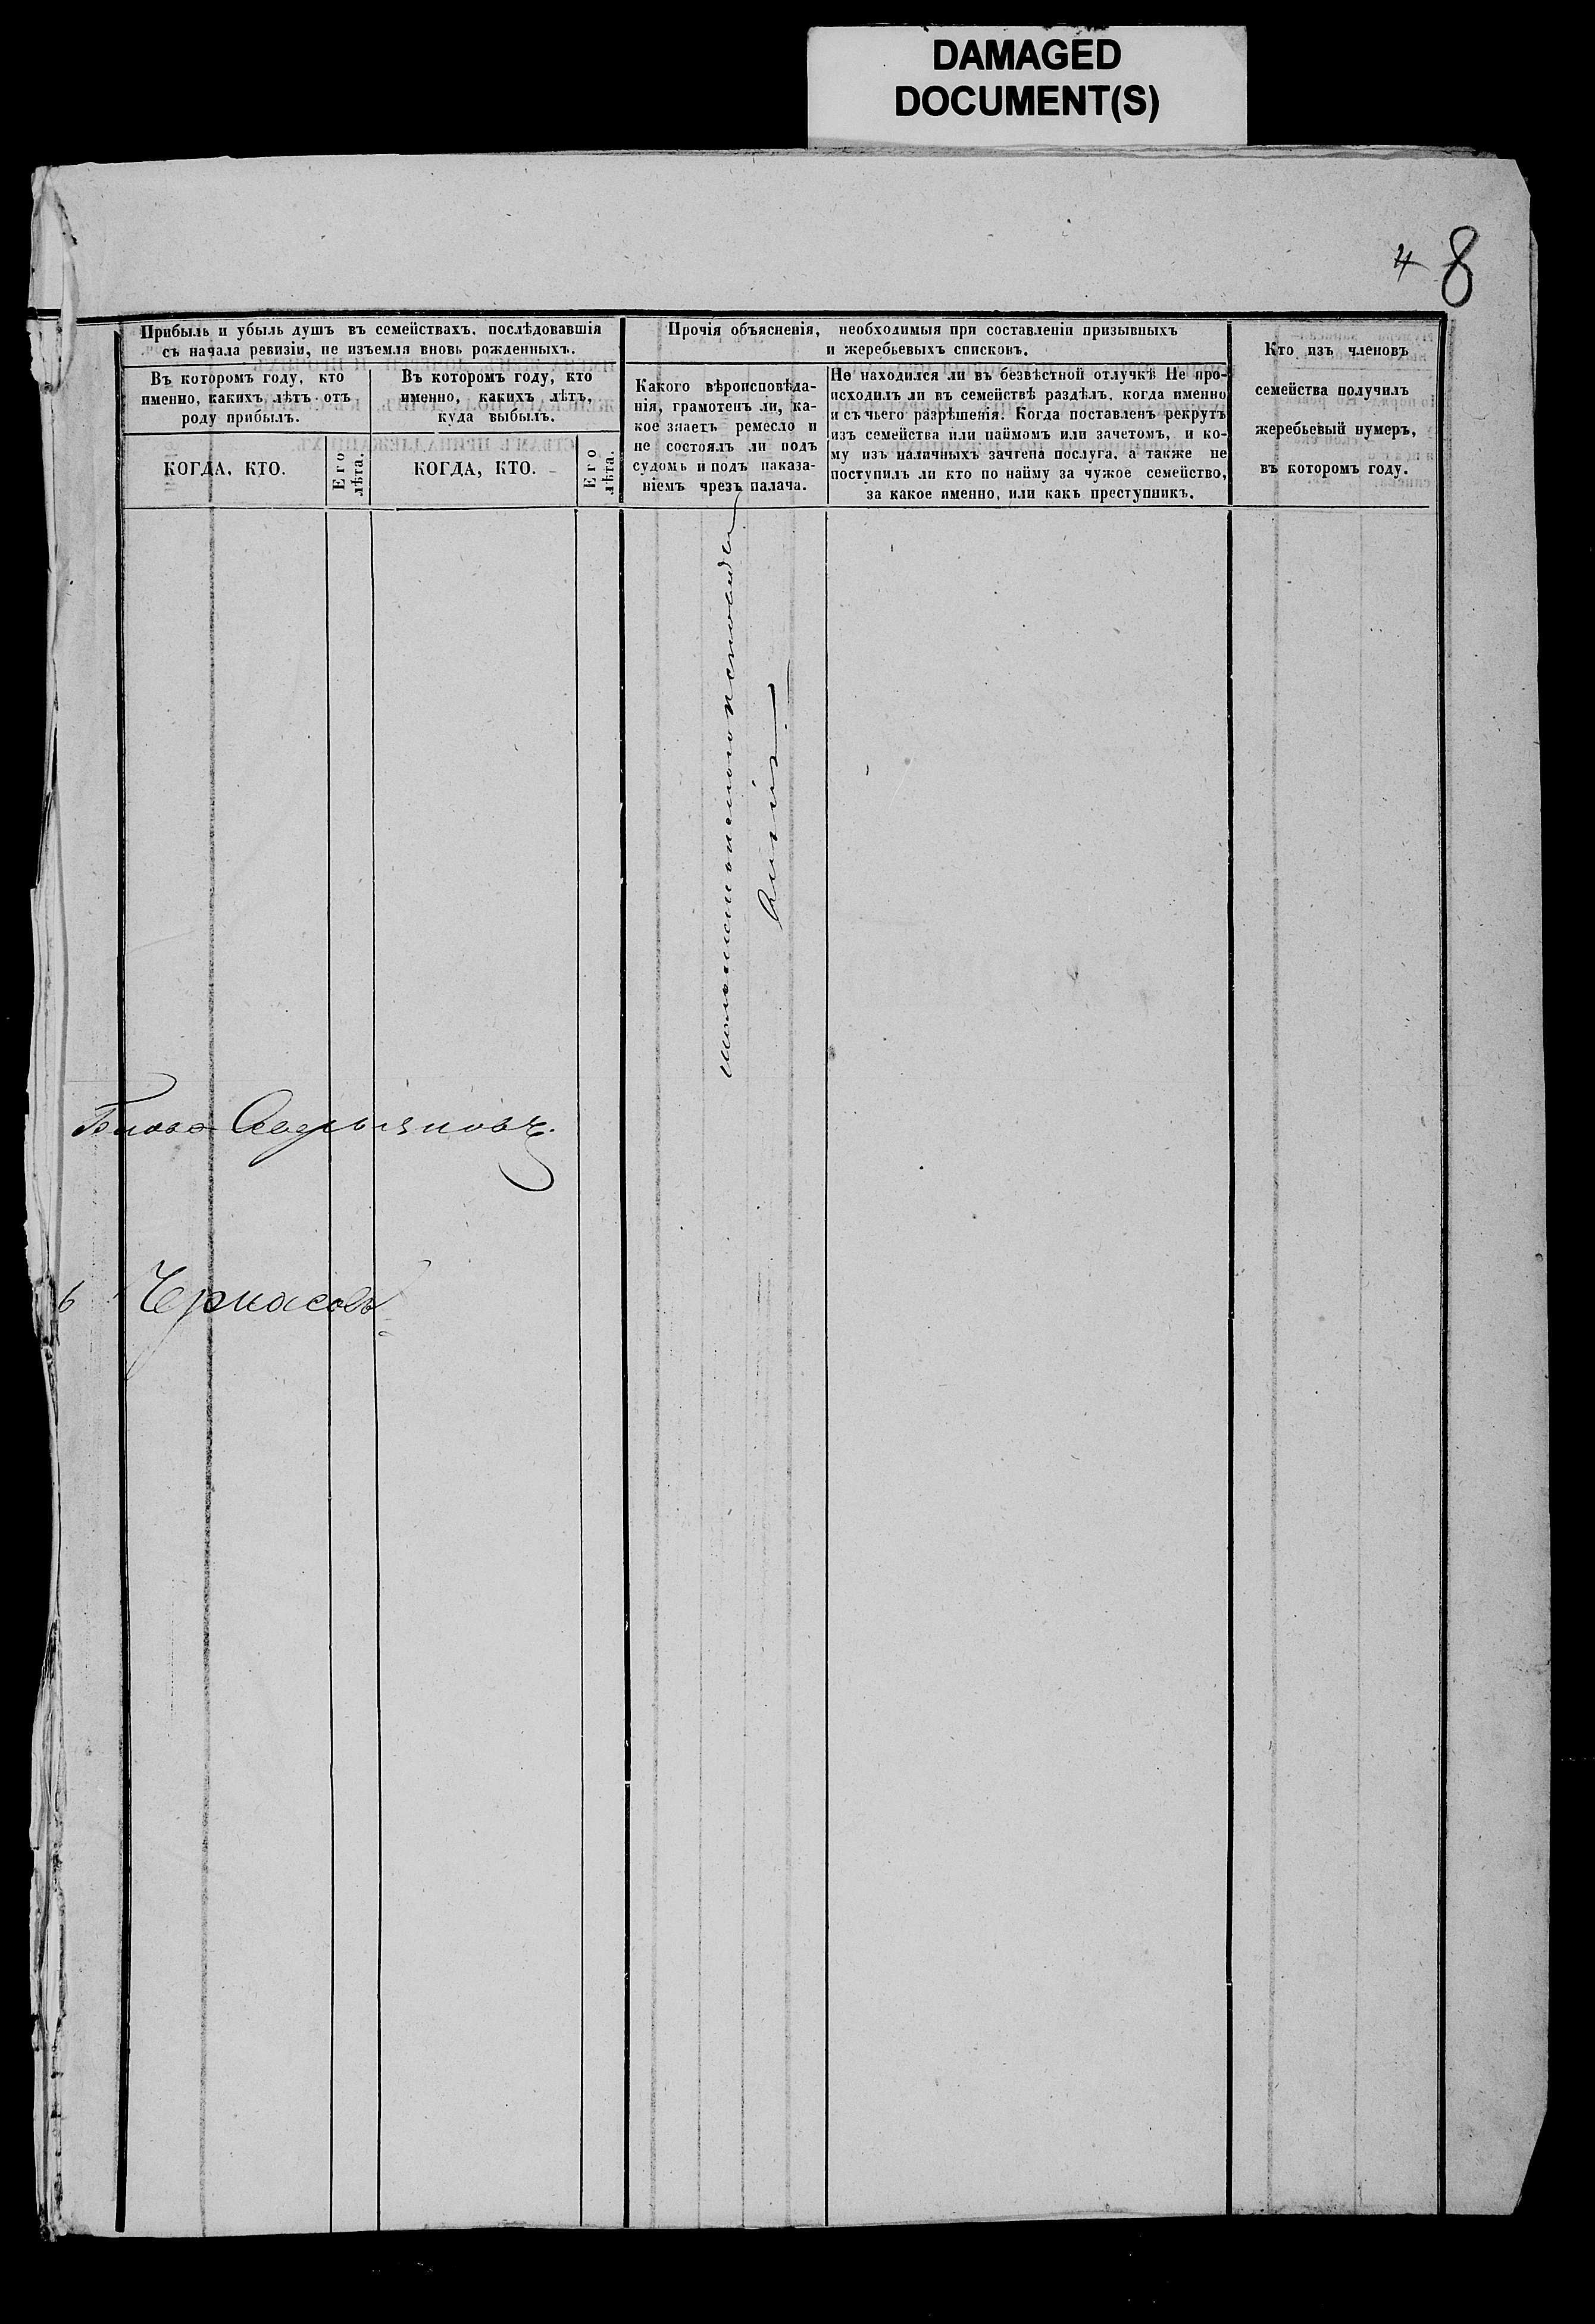 DAMAGED
DOCUMENT(S)
4 8
Прибыль и убыль душъ въ семействахъ, послѣдовавшія
съ начала ревизіи, не изъемля вновь рожденныхъ.
Въ которомъ году, кто
именно, какихъ лѣтъ отъ
роду прибылъ.
КОГДА, КТО.
Его
лѣта.
Въ которомъ году, кто
именно, какихъ лѣтъ,
куда выбылъ.
КОГДА, КТО.
Его
лѣта.
Прочія объясненія, необходимыя при составленіи призывныхъ
и жеребьевыхъ списковъ.
Какого вѣроисповѣда-
нія, грамотенъ ли, ка-
кое знаетъ ремесло и
не состоялъ ли подъ
судомъ и подъ наказа-
ніемъ чрезъ палача.
Не находился ли въ безвѣстной отлучкѣ Не про-
исходилъ ли въ семействѣ раздѣлъ, когда именно
и съ чьего разрѣшенія. Когда поставленъ рекрутъ
изъ семейства или наймомъ или зачетомъ, и ко-
му изъ наличныхъ зачтена послуга, а также не
поступилъ ли кто по найму за чужое семейство,
за какое именно, или какъ преступникъ.
Кто изъ членовъ
семейства получилъ
жеребьевый нумеръ,
въ которомъ году.
исповѣда
нія
Черкасовъ